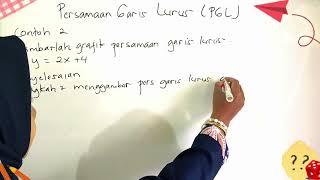 Persamaan Garis Lurus (PGL)
Contoh 2
ambarlah grafik persamaan garis lurus
y = 2x + 4
yelesaian
gkah2 menggambar pers garis lurus
??